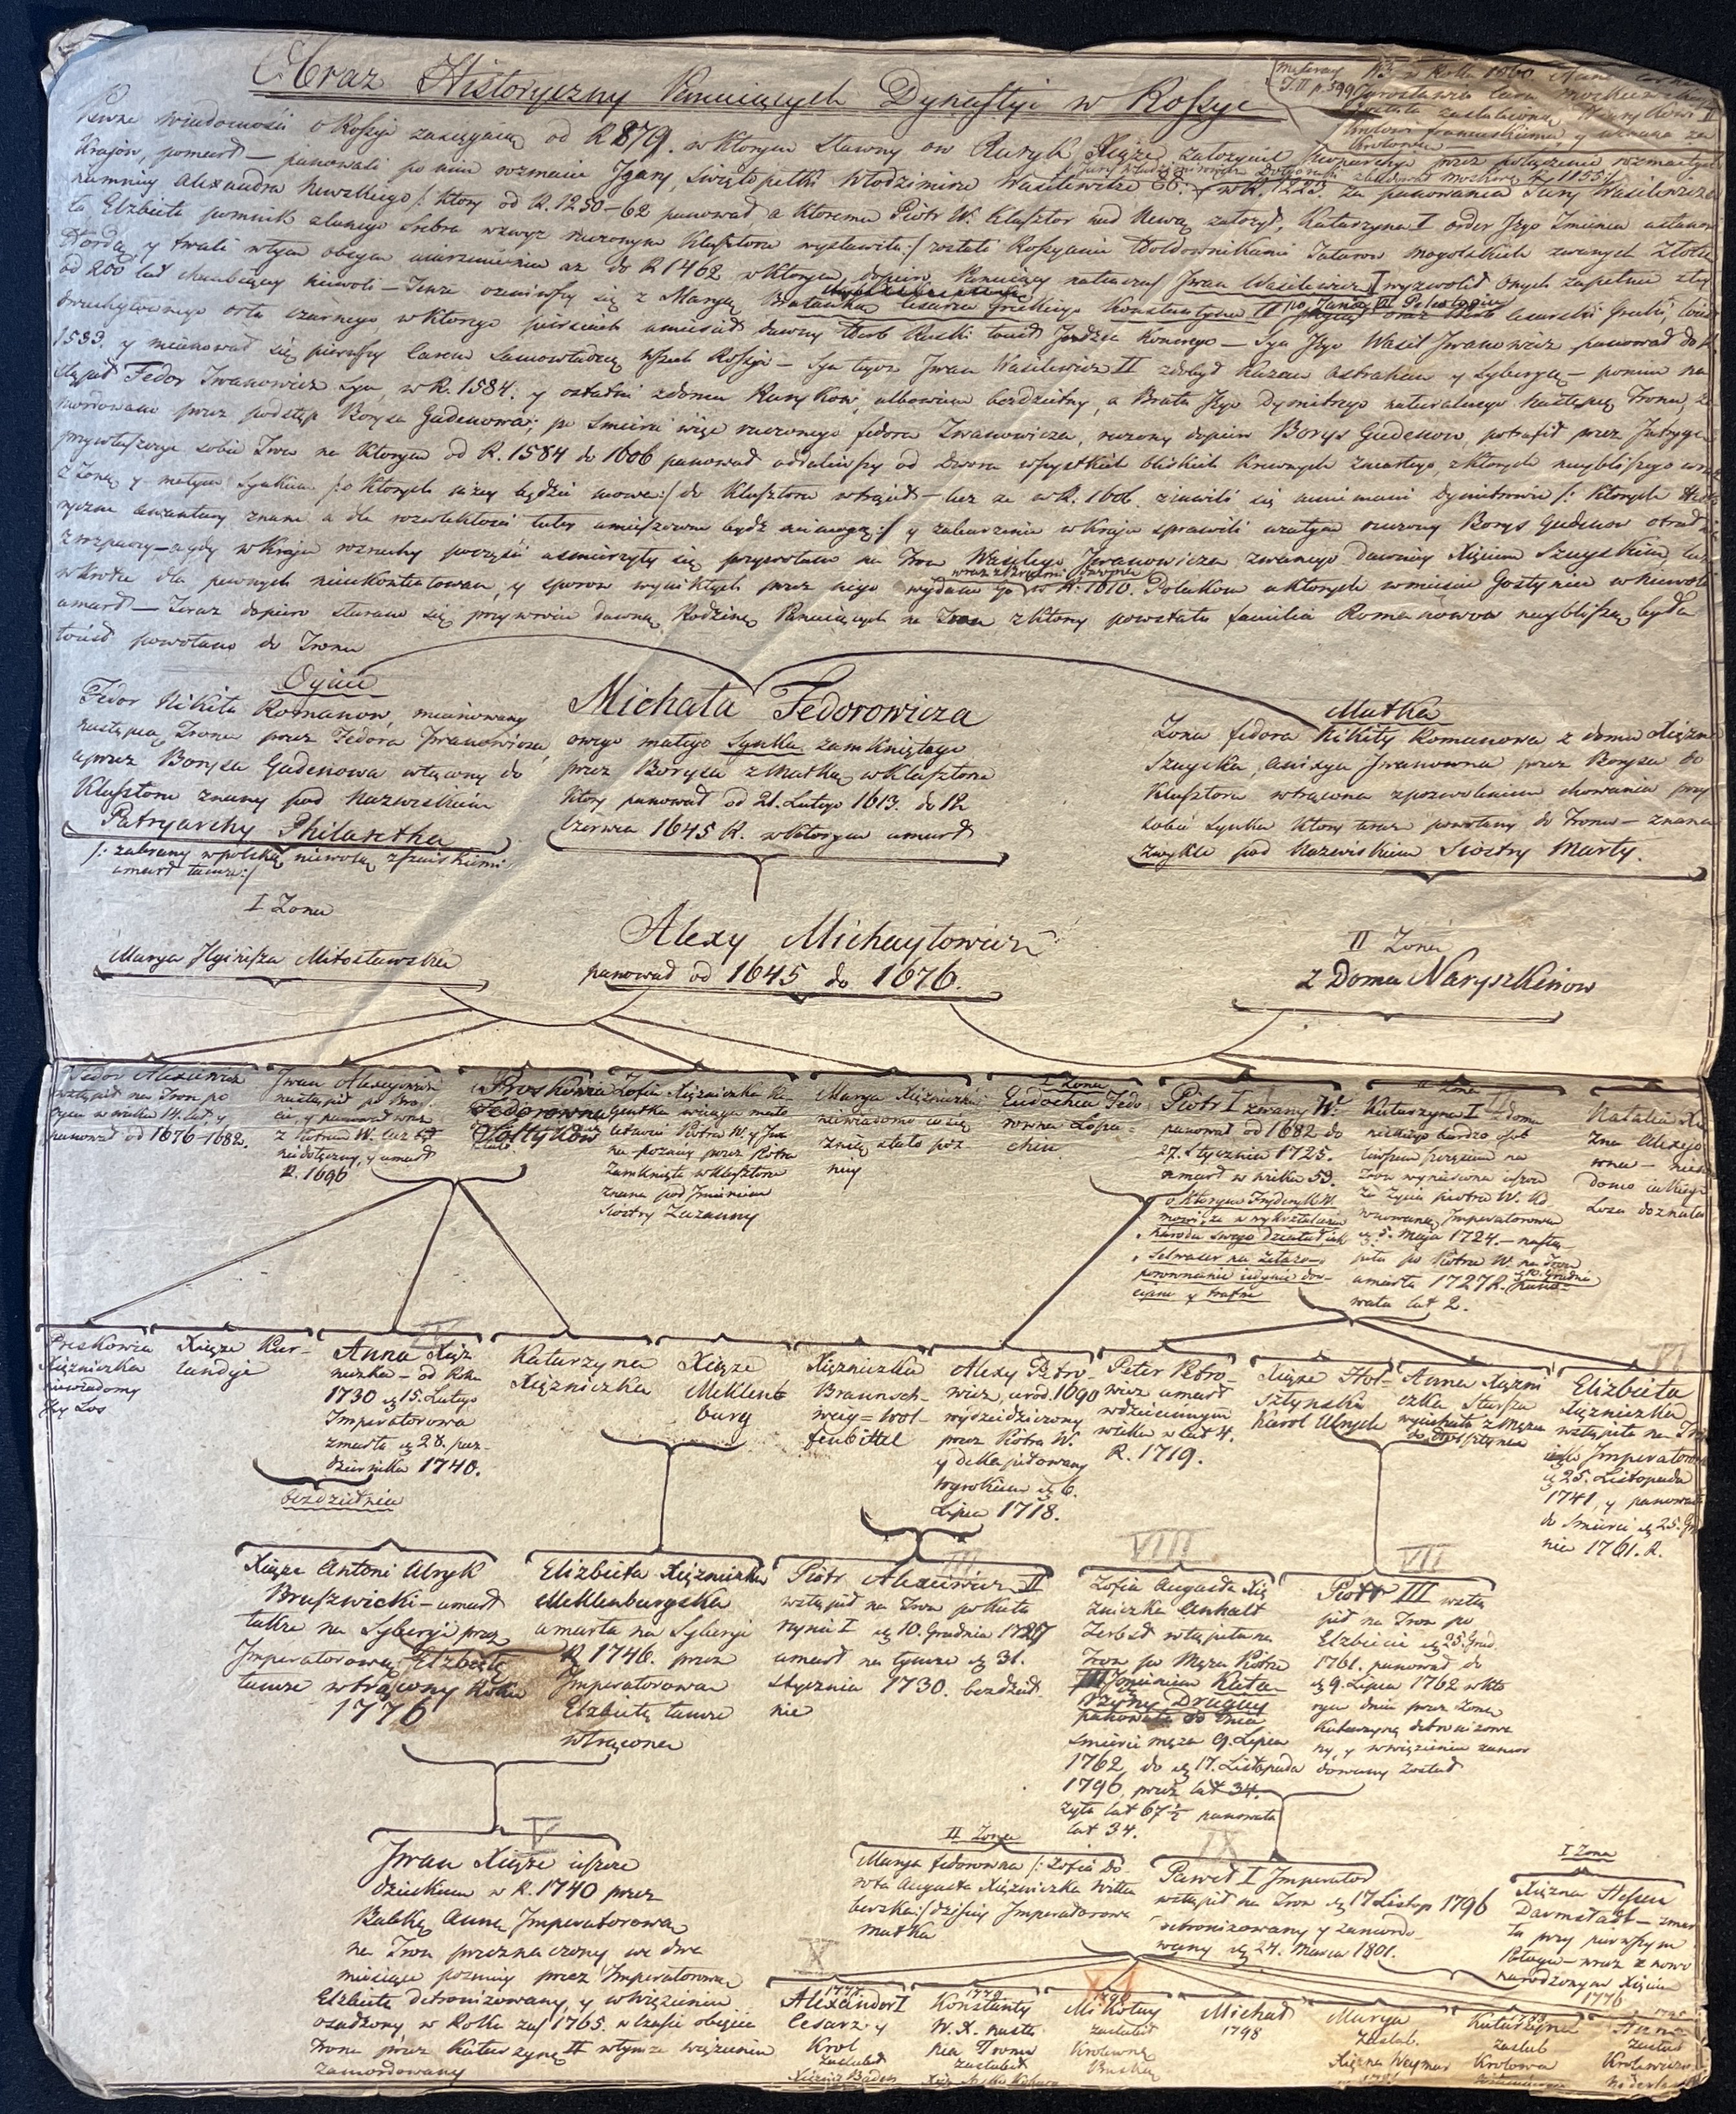 Obraz Historyczny Panuiących Dynastyi w Rossyi
T. II p. 599
w Roku 1060
Pewne wiadomości o Rossyi zasięgaią od R 879. w ktorym sławny ow Ruryk Xiąże założyciel Monarchyi przez połączenie rozmaitych
Kraiów, pomarł — panowali po nim rozmaici Igory, Swiętopełki Włodzimirze Wasilewicze &c: w R. 1223. za panowania Jury Wasilewicza
Alexandra Newskiego /: ktory od R. 1250-62 panował a ktoremu Piotr W. Klasztor nad Newą założył, Katarzyna I order Jego Imienia
ta, Elżbieta pomnik z lanego srebra wzwyż rzeczonym Klasztorze wystawiła :/ zostali Rossyanie Hołdownikami Tatarow mogolskich zwanych Złotą
Hordą y trwali w tym obcym uiarzmieniu aż do R 1462 w ktorym dopiero Panuiący natenczas Jwan Wasilewicz I wyzwolił onych zupełnie z tey
od 200 lat niewoli — Tenze ożeniwszy się z Maryą Cesarza Greckiego Konstantyna oraz Herb Cesarski Grecki,
dwugłownego orła czarnego, w ktorego piersiach umieścił dawny Herb Ruski Jezdzca Konnego — Syn Jego Wasil Jwanowicz panował do R.
1533. y mianował się pierwszy Carem Samowładcą Wszech Rossyi — Syn tegoz Jwan Wasilewicz II zdobył Kazan Astrahan y Syberyą — po nim na
stąpił Fedor Jwanowicz syn, w R. 1584. y ostatni z domu Ruryków, albowiem bezdzietny, a Brata Jego Dymitrego naturalnego następcę Tronu, za
mordowano przez podstęp Borysa Gudenowa; po śmierci więc rzeczonego Fedora Jwanowicza, rzeczony dopiero Borys Gudenow, potrafił przez Intrygi
przywłaszczyć sobie Tron na ktorym od R. 1584 do 1606 panował oddaliwszy od Dworu wszystkich bliskich Krewnych zmarłego, z ktorych naybliższego wraz
z Żoną y małym Synkiem /: o ktorych niżey będzie mowa :/ do Klasztoru wtrącił — lecz ze w R. 1606. ziawili się mniemani Dymitrowie /: ktorych
awantury znane a dla rozwlekłości tutey umieszczone bydź nie mogą :/ y zaburzenia w Kraiu sprawili uczuł rzeczony Borys Gudenow
z rozpaczy — a gdy w Kraiu rozruchy poczęści uśmierzyły się przywołano na Tron Wasilego Jwanowicza zwanego dawniey Xięciem Szuyskim
wkrótce dla pewnych nieukontentowań, y sporow wynikłych przez niego wydano go w R. 1610. Polakom u ktorych w mieście Gostyninie w niewoli
umarł — Teraz dopiero starano się przywrócić dawną Rodzinę Panuiących na Tron z ktorey powstała familia Romanowow naybliższą była
toież powołano do Tronu
Oyciec
Fedor Nikita Romanow, mianowany
następcą Tronu przez Fedora Jwanowicza,
a przez Borysa Gudenowa wtrącony do
Klasztoru znany pod Nazwiskiem
Patryarchy Philaretha
/: zabrany w polską niewolę z Szuiskiemi,
umarł tamże :/
Michała Fedorowicza
owego małego Synka zamkniętego
przez Borysa z Matką w Klasztorze
ktory panował od 21. Lutego 1613. do 12
Czerwca 1645 R. w ktorym umarł
Matka
Żona Fedora Nikity Romanowa z domu Xiężna
Szuyska, Jwanowna przez Borysa do
Klasztoru wtrącona z pozwoleniem chowania przy
sobie Synka ktory teraz powołany do Tronu — znana
zwykle pod Nazwiskiem Siostry Marty.
I Żona
Marya Miłosławska
Alexy Michayłowicz
panował od 1645 do 1676.
II Żona
z Domu Naryszkinow
Fedor Alexiewicz
wstąpił na Tron po
oycu w wieku 14. lat, y
panował od 1676-1682.
Jwan Alexyewicz
nastąpił po Bra-
cie, y panował wraz
z Piotrem W. lecz był
niedołężny, y umarł
R. 1696
Proskowia
Fedorowna
Sołtyków
Zofia Xiężniczka Re-
gentka w ciągu mało
letności Piotra W. y Jwa
na poźniey przez Piotra
zamknięta w Klasztorze
znana pod Imieniem
Siostry Zuzanny
Marya Xiężniczka
niewiadomo co się
z nią stało poź
niey
I Żona
Eudochia Fedo
rowna Łopu-
chin
Piotr I zwany W.
panował od 1682 do
27. Stycznia 1725.
umarł w wieku 53.
o ktorym Fryderyk W.
mowi, że w wykształceniu
narodu swego działał iak
Serwaser na żelazo—
porownanie iedynie dow-
cipne y trafne
II Żona
Katarzyna I z domu
niskiego bardzo osob
liwszem szczęściem na
Tron wyniesiona ieszcze
za życia Piotra W. Ko
ronowaną Imperatorową
dn. 5. Maja 1724. — nastą-
piła po Piotrze W. na Tron
umarła 1727 R. pano-
wała lat 2.
Natalia Xię
żna Alexyo
wna — niewia
domo iakiego
Losu doznała
Preskowia
Xiężniczka
niewiadomy
Jey Los
Xiąże Kur-
landyi
IV
Anna Xięż
niczka — od Roku
1730 dn. 15. Lutego
Imperatorowa
zmarła dn. 28. paź-
dziernika 1740.
bezdzietnie
Katarzyna
Xiężniczka
Xiąże
Meklenb
burg
Xiężniczka
Braunsch-
weig = Wol-
fenbittel
Alexy Petro-
wicz, urod. 1690
wydziedziczony
przez Piotra W.
y dekapitowany
wyrokiem dn. 6.
Lipca 1718.
Peter Petro-
wicz umarł
w dziecinnym
wieku w lat 4.
R. 1719.
Xiąże Hol-
sztynski
Karol Ulrych
Anna Xiężni
czka starsza
wyiechała z Mężem
do Holsztynu
VI
Elżbieta
Xiężniczka
wstąpiła na Tron
iako Imperatorowa
dn. 25. Listopada
1741, y panowała
do śmierci dn. 25. Gru
dnia 1761. R.
Xiąże Antoni Ulryk
Brunszwicki — umarł
także na Syberyi przez
Imperatorową Elżbietę
tamże wtrącony Roku
1776
Elżbieta Xiężniczka
Meklenburgska
umarła na Syberyi
R 1746. przez
Imperatorową
Elżbietę tamże
wtrącona
III
Piotr Alexiewicz II
wstąpił na Tron po Kata
rzynie I dn. 10. Grudnia 1727
umarł na tymże dn. 31.
Stycznia 1730. bezdziet
nie
VIII
Zofia Augusta Xię
żniczka Anhalt
Zerbst wstąpiła na
Tron po Mężu Piotrze
III Imieniem Kata
rzyny Drugiey
panowała od dnia
śmierci męża 9. Lipca
1762, do dn. 17. Listopada
1796, przez lat 34.
żyła lat 67 1/2 panowała
lat 34.
VII
Piotr III wstą
pił na Tron po
Elżbiecie dn. 25. Grud.
1761. panował do
dn. 9. Lipca 1762 w kto
rym dniu przez Żonę
Katarzynę detronizowa
ny, y w więzieniu zamor
dowany został
V
Jwan Xiąże ieszcze
dzieckiem w R. 1740 przez
Babkę Annę Imperatorową
na Tron przeznaczony we dwa
miesiące pozniey przez Imperatorową
Elżbietę detronizowany, y w więzieniu
osadzony, w Roku zaś 1765. w czasie obięcia
Tronu przez Katarzynę II w tymże więzieniu
zamordowany
II Żona
Marya Fedorowna /: Zofia Do-
rota Augusta Xiężniczka Wirtem
berska :/ dzisiey Imperatorowa
matka
IX
Paweł I Imperator
wstąpił na Tron dn. 17 Listop 1796
detronizowany y zamordo-
wany dn. 24. Marca 1801.
I Żona
Xiężna Hessen
Darmstadt — zmar
ła przy pierwszym
Połogu — wraz z nowo
narodzonym Xięciem
1776
X
1777
Alexander I
Cesarz y
Krol
zaslubił
1779
Konstanty
W. X. nastę
pca Tronu
zaslubił
XI
1796
Mikołay
zaslubił
Krolewnę
Pruską
Michał
1798
Marya
zaslub.
Xiężna Weymar
1788
Katarzyna
zaslub
Krolowa
1795
Anna
zaslub
Krolewicza
Niderland